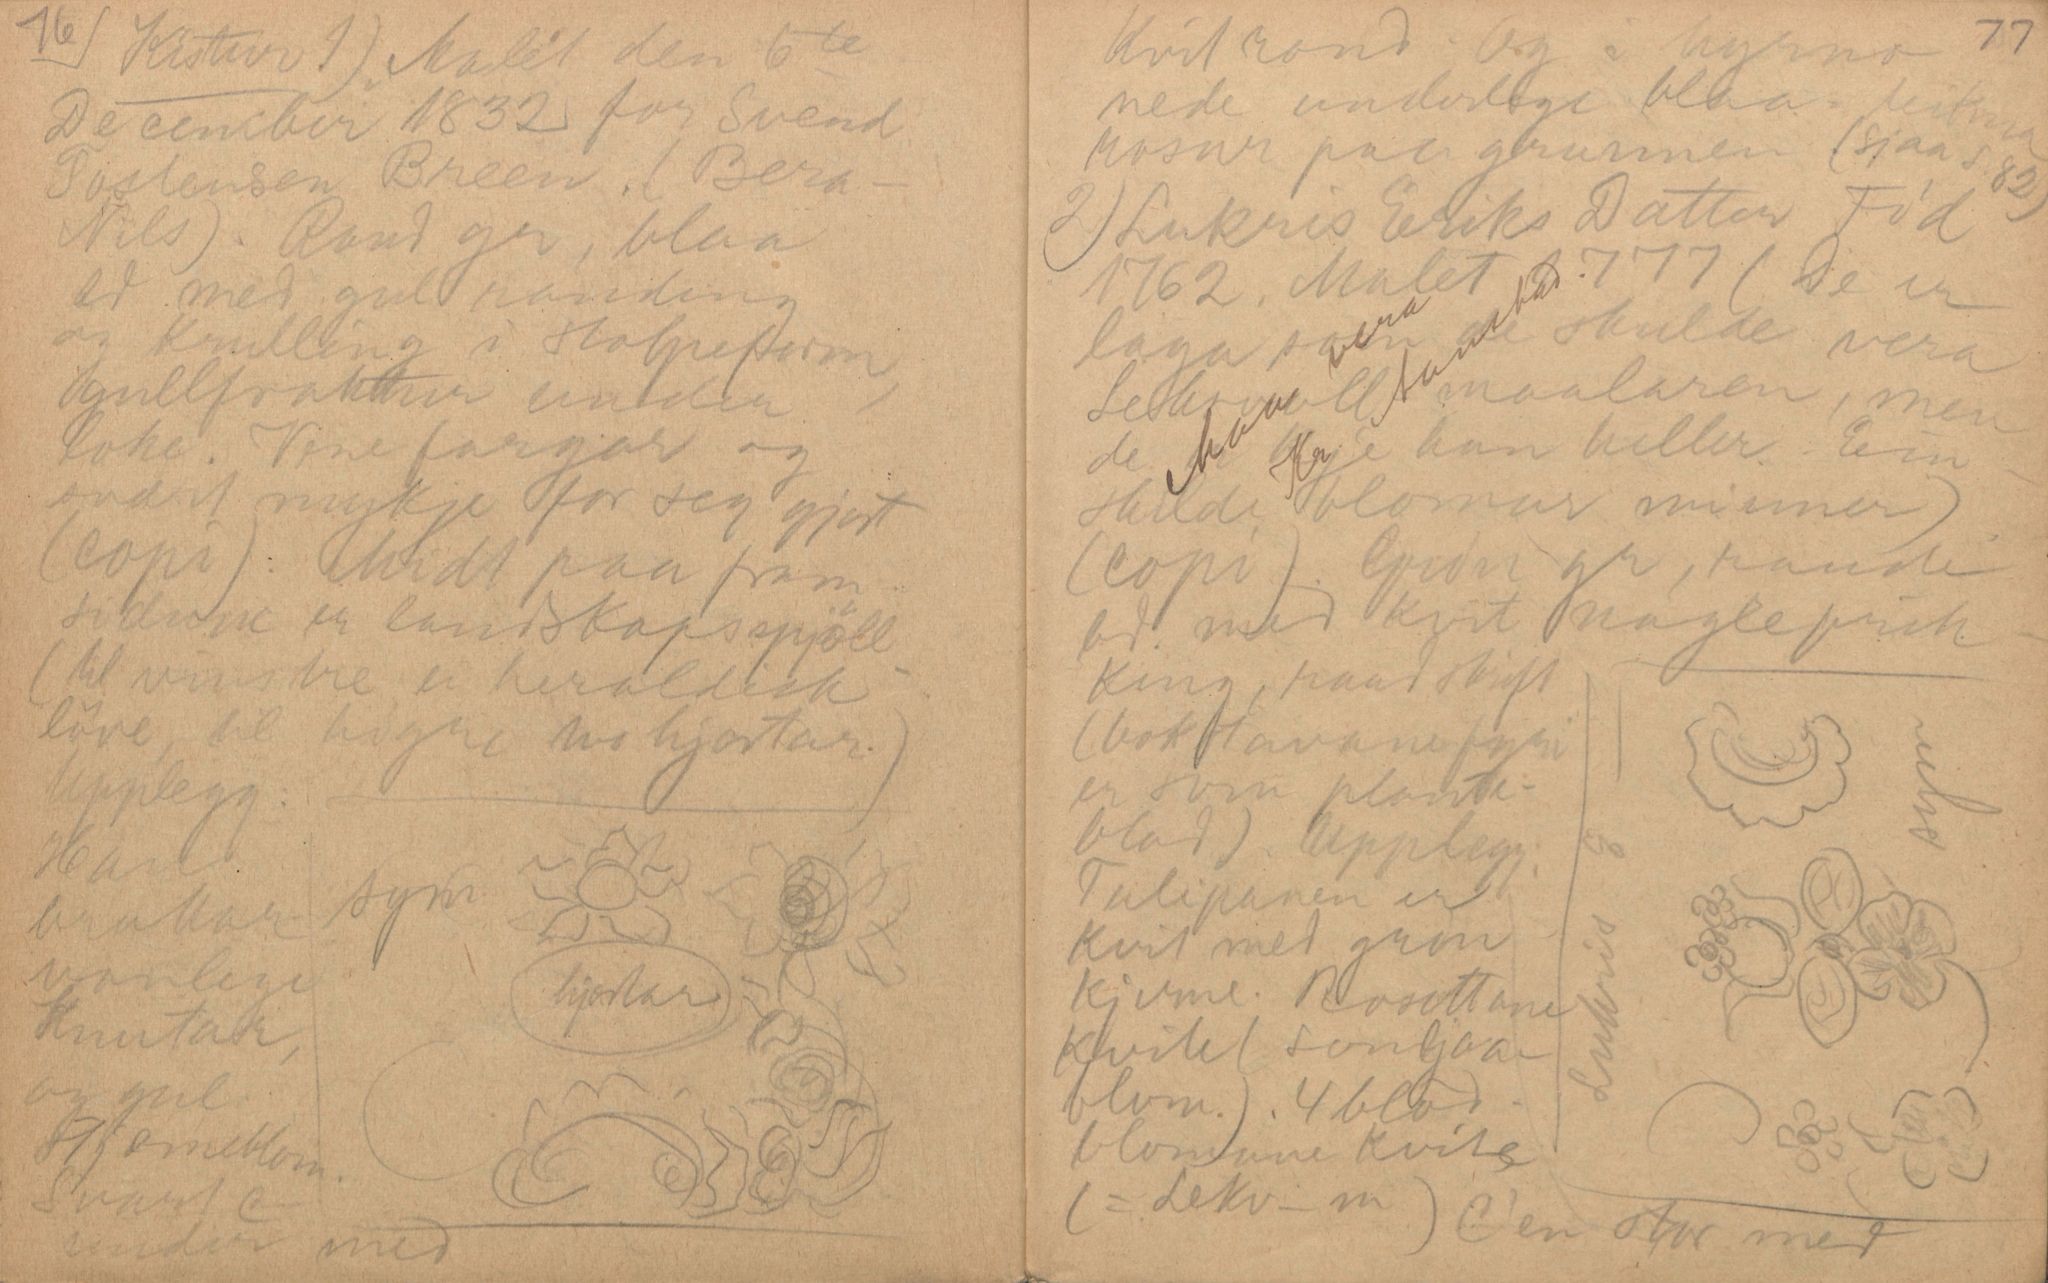 76
Kistur 1) Malet den 6te
December 1832 for Svend
Tostensen Breen. (Bera-
Nils). Raud gr, blaa
ed med gul randing
og krulling i stolpeform
Gullfraktur under
loke. Vene fargar og
mykje for seg gjort
(copi). Midt paa fram-
sidune er landskapsspjöll
(til vinstre ei heraldisk
löve, til högre tvo hjortar.)
Upplegg:
Han
brukar
vanlege
Knutar,
og gul
Stjerneblom.
Svart
under med
sym
hjortar
77
Kvit rand. Og i hyrno
nede underlege blaa
rosur paa grunnen (sjaa S. 82)
2) Lukris Eriks Datter Född
1762. Malet 1777 (De er
laga som de skulde vera
Sekvall maalaren, men
de er kje han heller. Ein-
skilde blomar minner)
maa vera
Kr. Aanstad.
(copi). Grön gr, raude
ed. med kvit nagleprik-
king, raud skrift
(bokstavane fyri
er som plante-
blad). Upplegg:
Tulipanen er
kvit med grön
kjerne. Rosettane
kvite (
blom.). 4 blad-
blomane kvite
(= Sekv-m) Ein stor med
Lukris E
sym